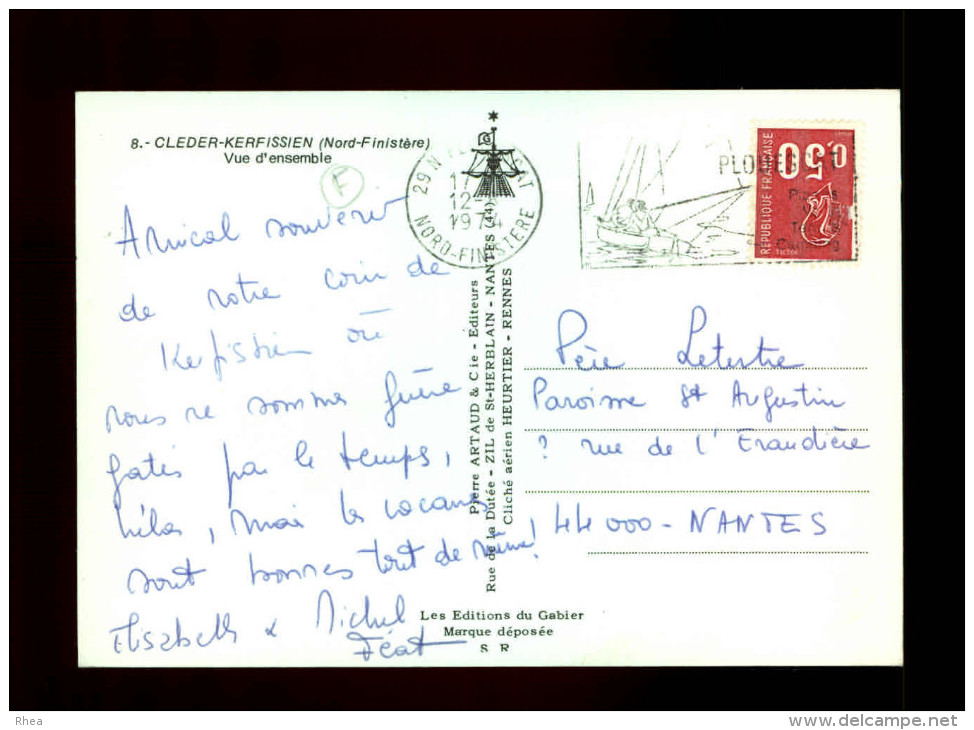 8.- CLEDER-KERFISSIEN (Nord-Finistère)
Vue d'ensemble
F
Amical souvenir
de notre coin de
Kerfissien où
nous ne sommes guère
gatés par le temps,
hélas, mais les vacances
sont bonnes tout de même!
Elisabeth & Michel
Féat
29 N
17
12-
1974
NORD-FINISTERE
PLO
REPUBLIQUE FRANÇAISE
0,50
Pierre ARTAUD & Cie - Editeurs
Rue de la Dutée - ZIL de St-HERBLAIN - NANTES (44)
Cliché aérien HEURTIER - RENNES
Père Letertre
Paroisse St Augustin
? rue de l'Eraudière
44000 - NANTES
Les Editions du Gabier
Marque déposée
S R
Rhea
www.delcampe.net